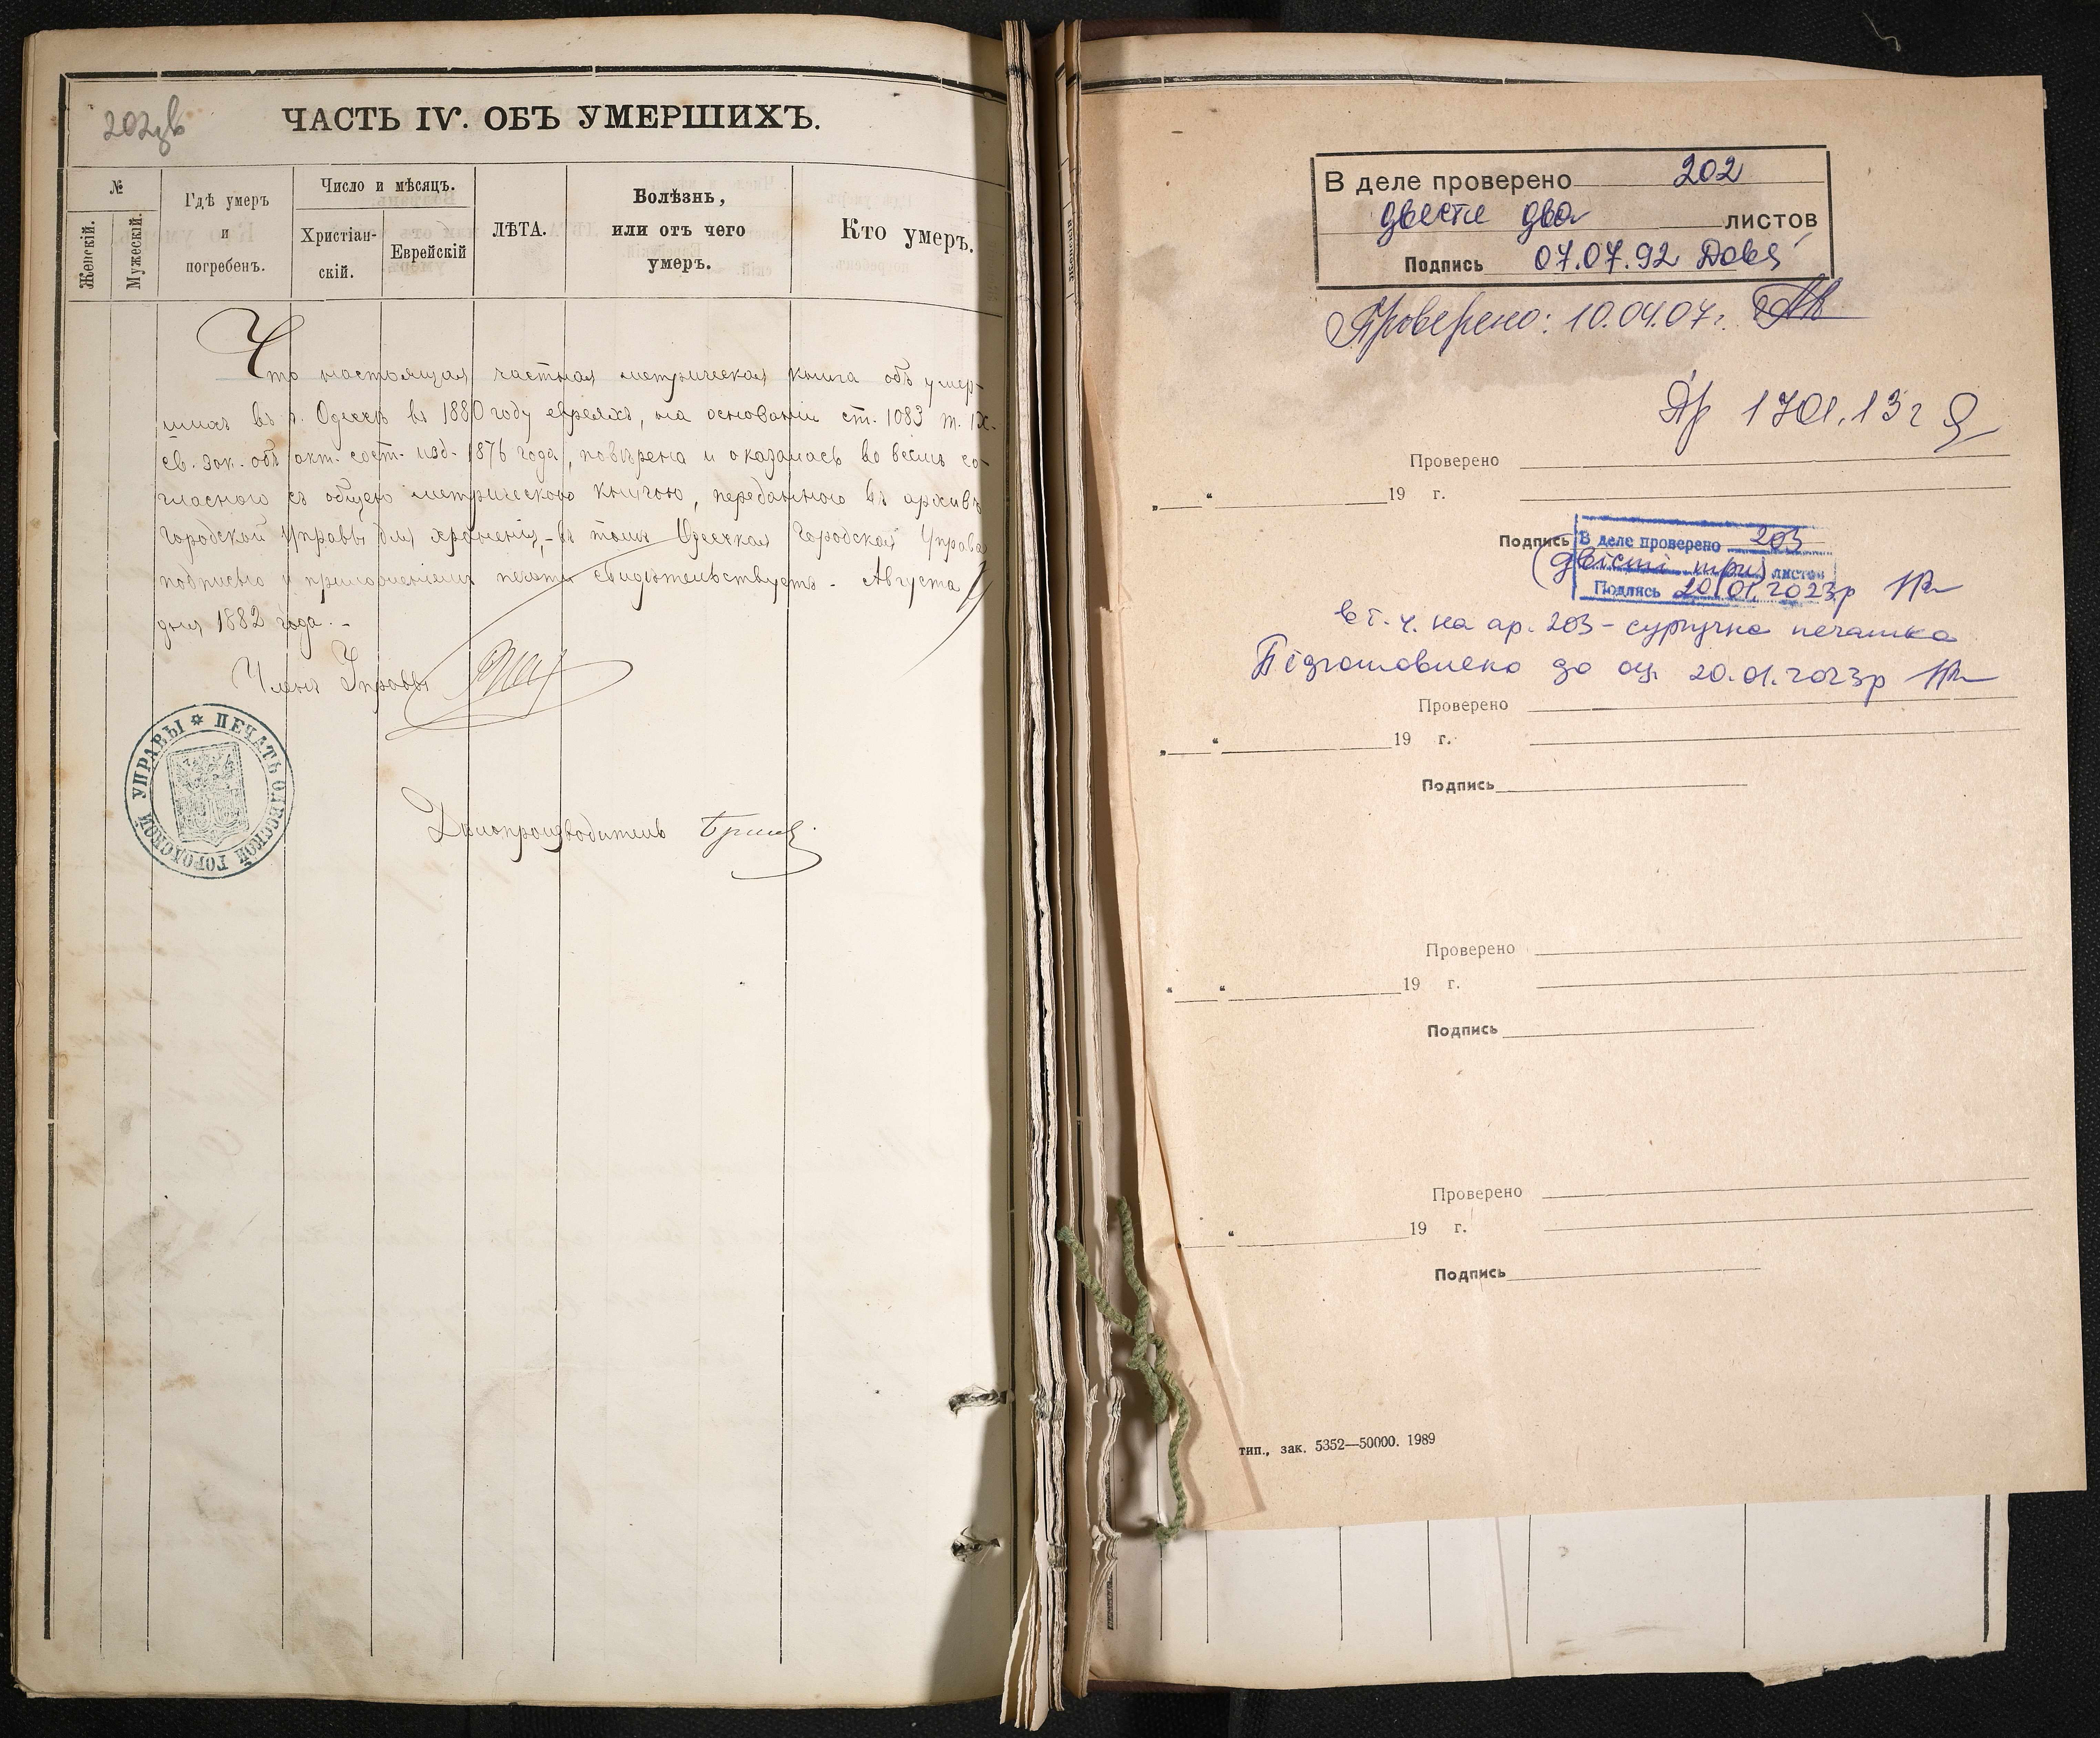 202зв
ЧАСТЬ IV. ОБЪ УМЕРШИХЪ.
№
Женскій.
Мужескій.
Гдѣ умеръ
и
погребенъ.
Число и мѣсяцъ.
Христіан-
скій.
Еврейскій
ЛѢТА.
Болѣзнь,
или отъ чего
умеръ.
Кто умеръ.
Что настоящая частная метрическая книга объ умер-
шихъ въ г. Одессѣ въ 1880 году евреяхъ, на основаніи ст. 1083 т. IX.
св. зак. объ акт. сост. изд. 1876 года, повѣрена и оказалась во всемъ со-
гласною съ общею метрическою книгою, переданною въ архивъ
Городской Управы для храненія, - въ томъ Одесская Городская Управа
подписью и приложеніемъ печати свидѣтельствуетъ. - Августа
дня 1882 года. -
Членъ Управы
ПЕЧАТЬ ОДЕССКОЙ ГОРОДСКОЙ УПРАВЫ
Дѣлопроизводитель
В деле проверено 202
двести два листов
Подпись 07.07.92
Проверено: 10.04.07г.
Проверено
„ “ 19 г.
Подпись
В деле проверено 203
(двісті три) листов
Подпись 20.01.2023р
в т. ч. на ар. 203 - сургучна печатка
Підготовлено до оц. 20.01.2023р
Проверено
„ “ 19 г.
Подпись
Проверено
“ “ 19 г.
Подпись
Проверено
„ “ 19 г.
Подпись
тип., зак. 5352—50000. 1989